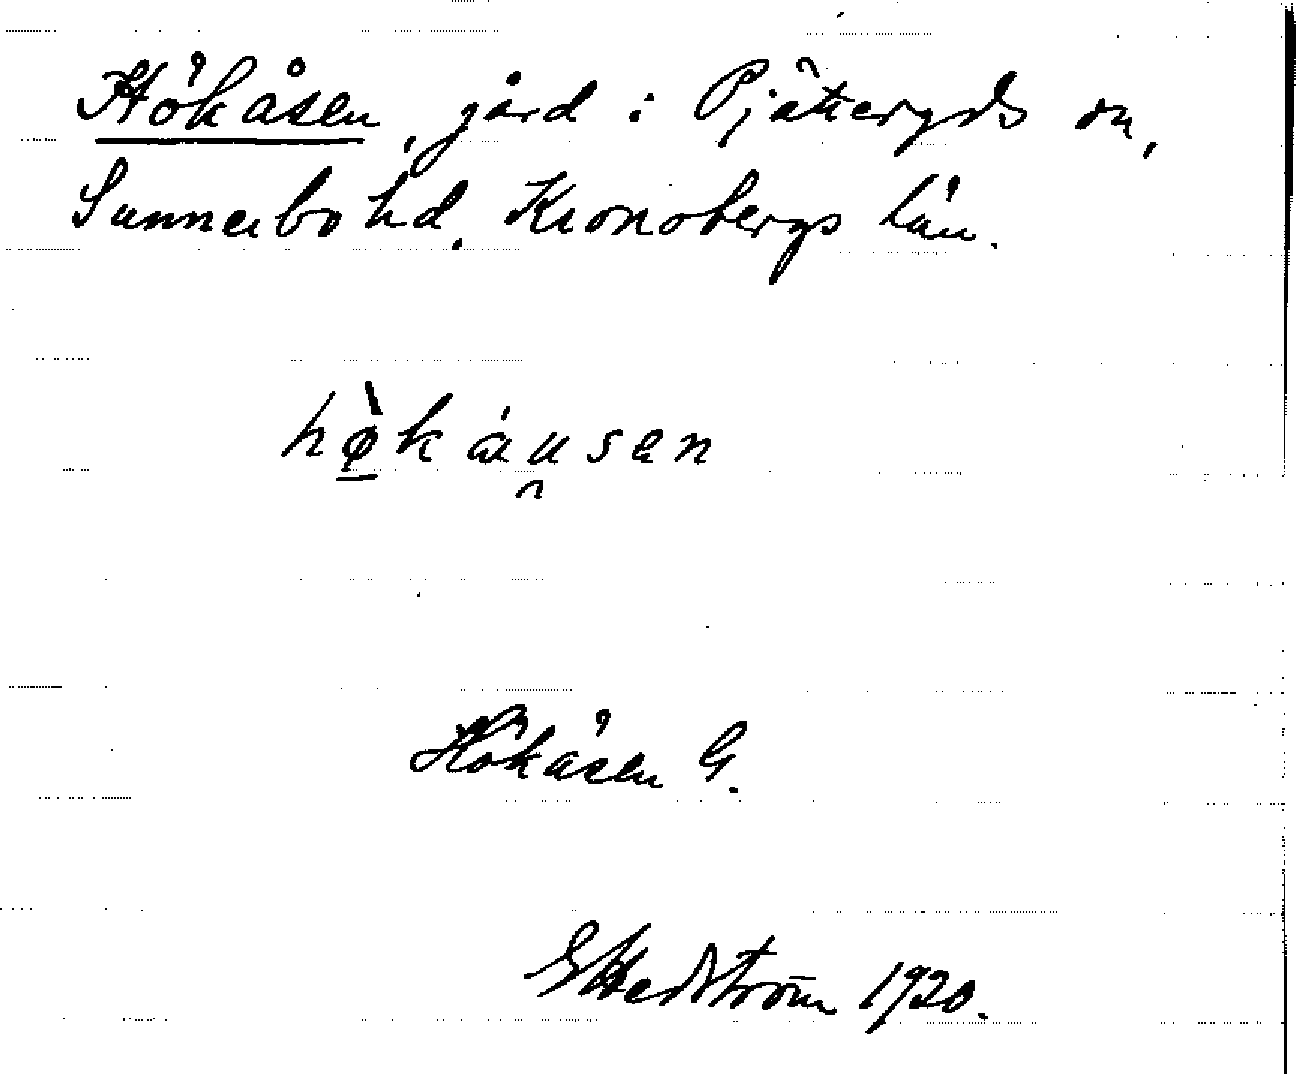 Hökåsen, gård i Pjätteryds sn,
Sunnerbo hd. Kronobergs län.
hø̱̀káu̯sen
Hökåsen G.
G Hedström 1920.